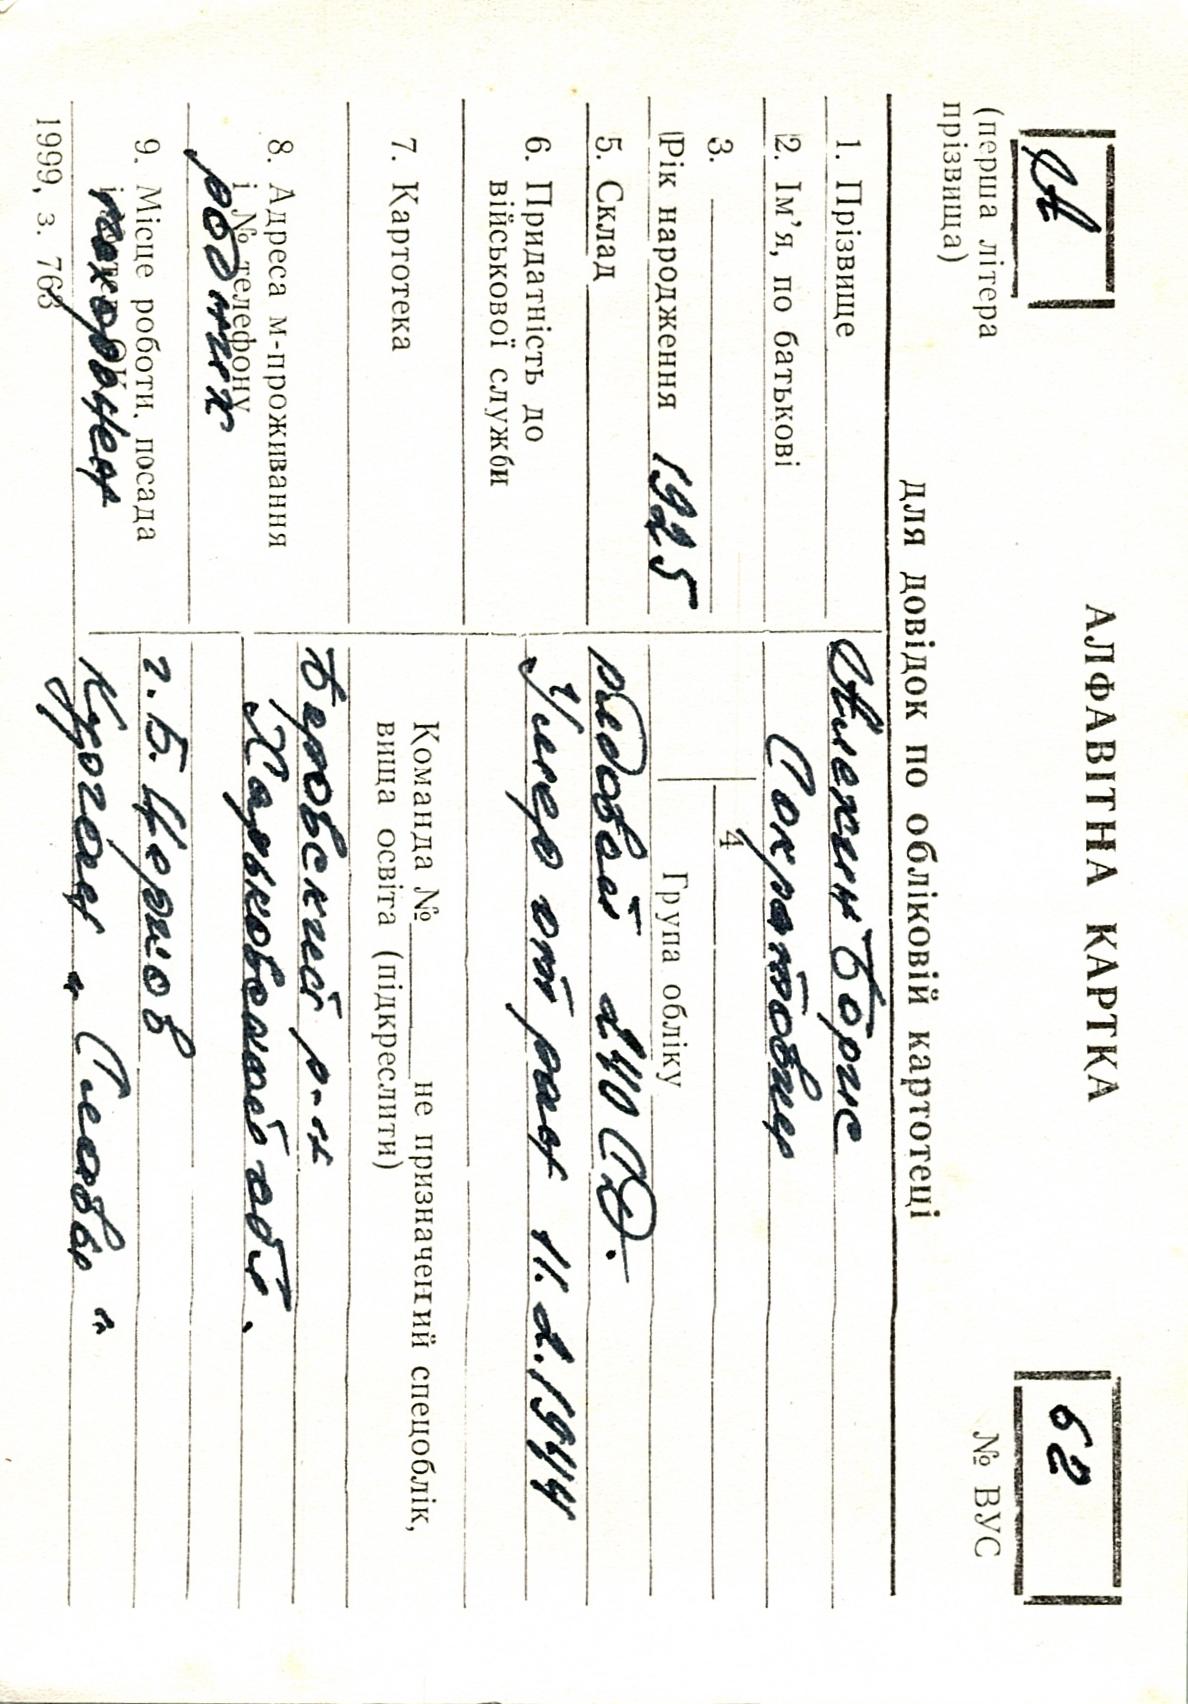 А
(перша літера
прізвища)
АЛФАВІТНА КАРТКА
для довідок по обліковій картотеці
62
№ ВУС
1. Прізвище Алексин Борис
2. Ім'я, по батькові Сократович
3.
4
Рік народження 1925 Група обліку
5. Склад рядовой 240 СД.
6. Придатність до
військової служби
Умер от ран 11.2.1944
7. Картотека
Команда № не призначений спецоблік,
вища освіта (підкреслити)
8. Адреса м-проживання
і № телефону
родился
Баровский р-н
Харьковской обл.
9. Місце роботи, посада
похоронен
г. Б. Церков
Курган "Славы"
1999, з. 763